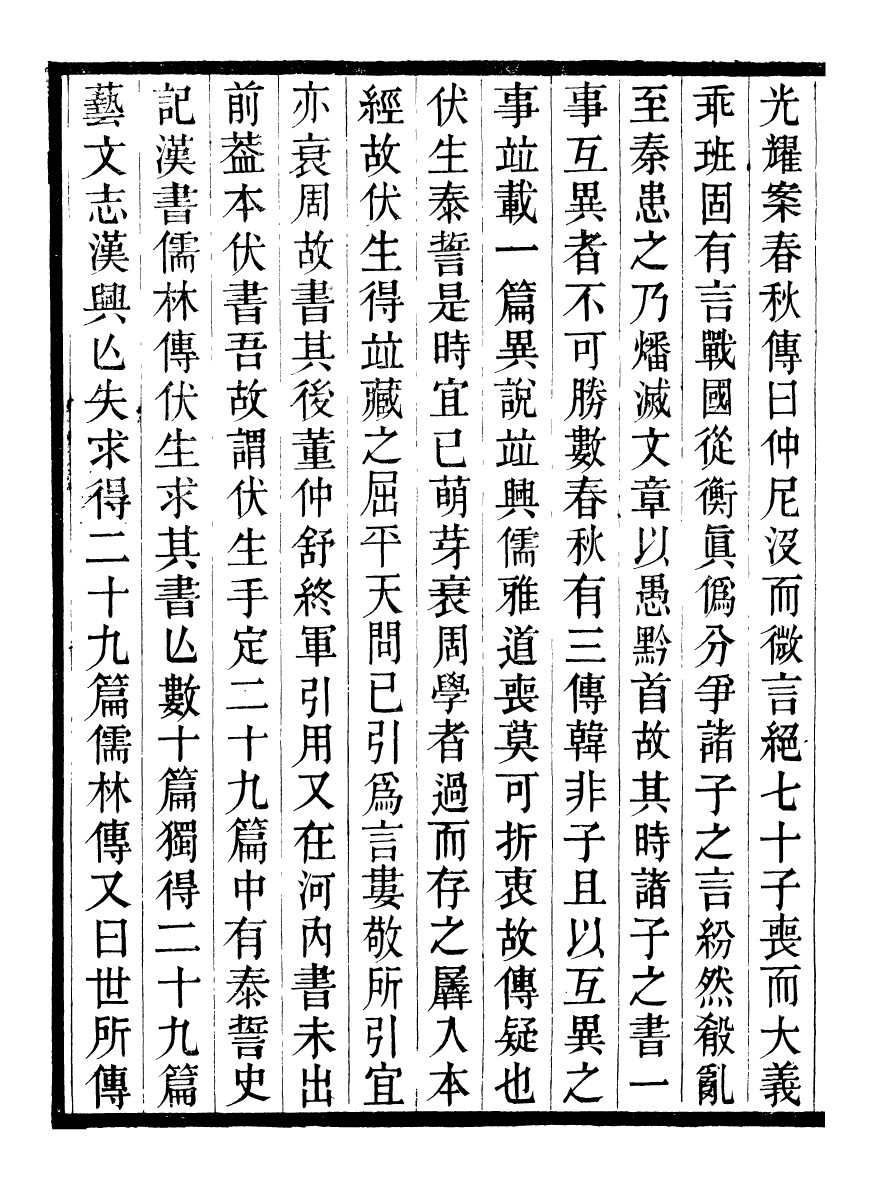 光耀案春秋傳曰仲尼沒而微言絕七十子喪而大義
乖班固有言戰國從衡眞僞分爭諸子之言紛然殽亂
至秦患之乃燔滅文章以愚黔首故其時諸子之書一
事互異者不可勝數春秋有三傳韓非子且以互異之
事竝載一篇異說竝興儒雅道喪莫可折衷故傳疑也
伏生泰誓是時宜已萌芽衰周學者過而存之羼入本
經故伏生得竝藏之屈平天問已引爲言婁敬所引宜
亦衰周故書其後董仲舒終軍引用又在河內書未出
前葢本伏書吾故謂伏生手定二十九篇中有泰誓史
記漢書儒林傳伏生求其書亾數十篇獨得二十九篇
藝文志漢興亾失求得二十九篇儒林傳又曰世所傳